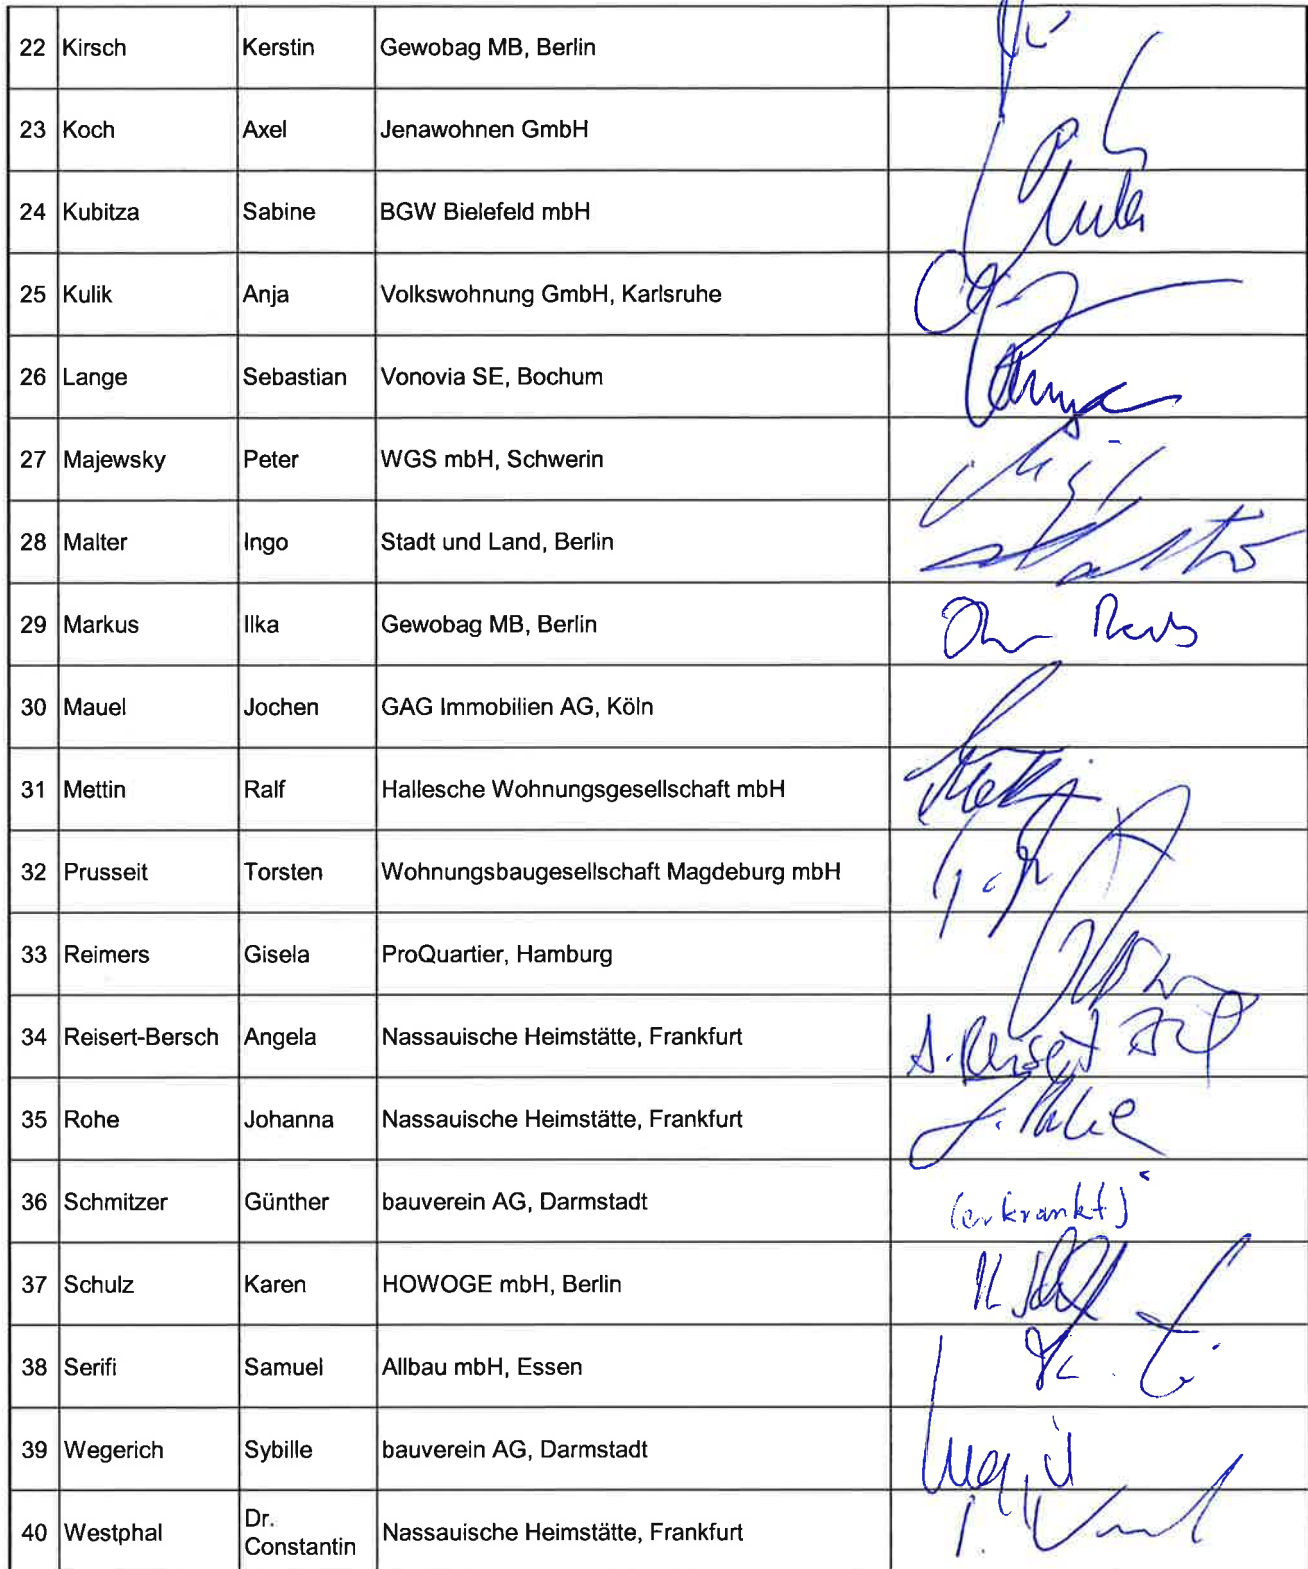 22 Kirsch Kerstin Gewobag MB, Berlin
23 Koch Axel Jenawohnen GmbH
24 Kubitza Sabine BGW Bielefeld mbH
25 Kulik Anja Volkswohnung GmbH, Karlsruhe
26 Lange Sebastian Vonovia SE, Bochum
27 Majewsky Peter WGS mbH, Schwerin
28 Malter Ingo Stadt und Land, Berlin
29 Markus Ilka Gewobag MB, Berlin
30 Mauel Jochen GAG Immobilien AG, Köln
31 Mettin Ralf Hallesche Wohnungsgesellschaft mbH
32 Prusseit Torsten Wohnungsbaugesellschaft Magdeburg mbH
33 Reimers Gisela ProQuartier, Hamburg
34 Reisert-Bersch Angela Nassauische Heimstätte, Frankfurt
35 Rohe Johanna Nassauische Heimstätte, Frankfurt
36 Schmitzer Günther bauverein AG, Darmstadt (erkrankt)
37 Schulz Karen HOWOGE mbH, Berlin
38 Serifi Samuel Allbau mbH, Essen
39 Wegerich Sybille bauverein AG, Darmstadt
40 Westphal Dr. Constantin Nassauische Heimstätte, Frankfurt